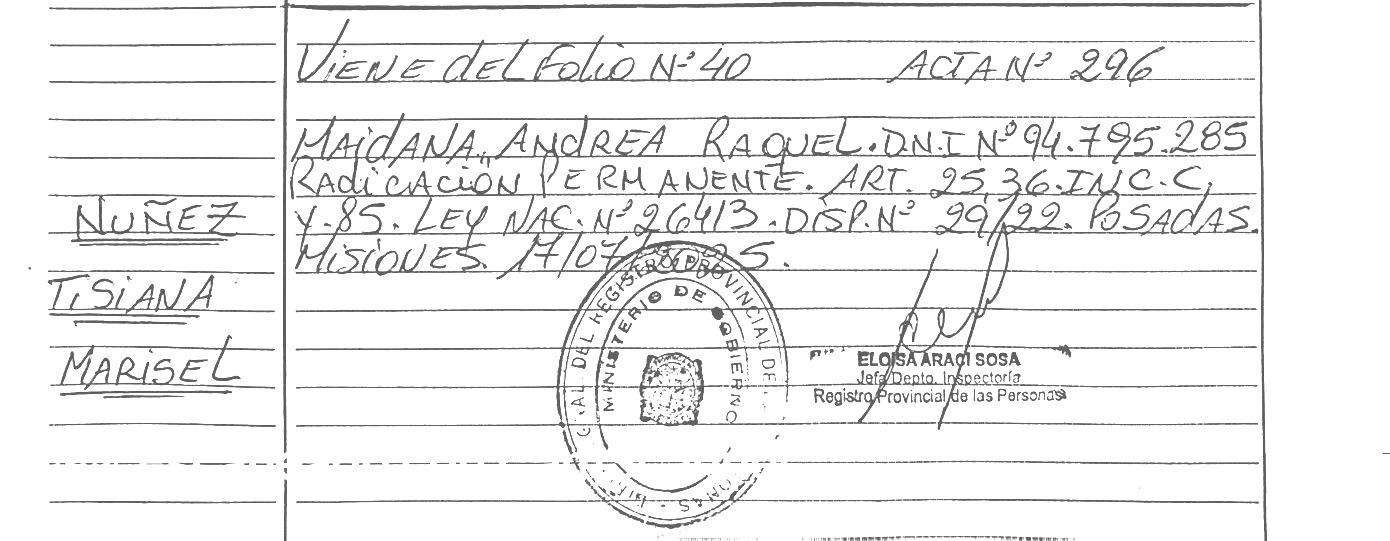 VIENE DEL FOLIO Nº 40 ACTA Nº 296
MAIDANA,, ANDREA RAQUEL. D.N.I Nº 94.795.285
RADICACIÓN PERMANENTE. ART. 25,36. INC. C,
Y. 85. LEY NAC. Nº 26413. DISP. Nº 29/22. POSADAS.
MISIONES. 17/07/
NUÑEZ
TISIANA
MARISEL
GRAL DEL REGISTRO PROVINCIAL DE
MINISTERIO DE GOBIERNO
ELOISA ARACI SOSA
Jefa Depto. Inspectoría
Registro Provincial de las Personas